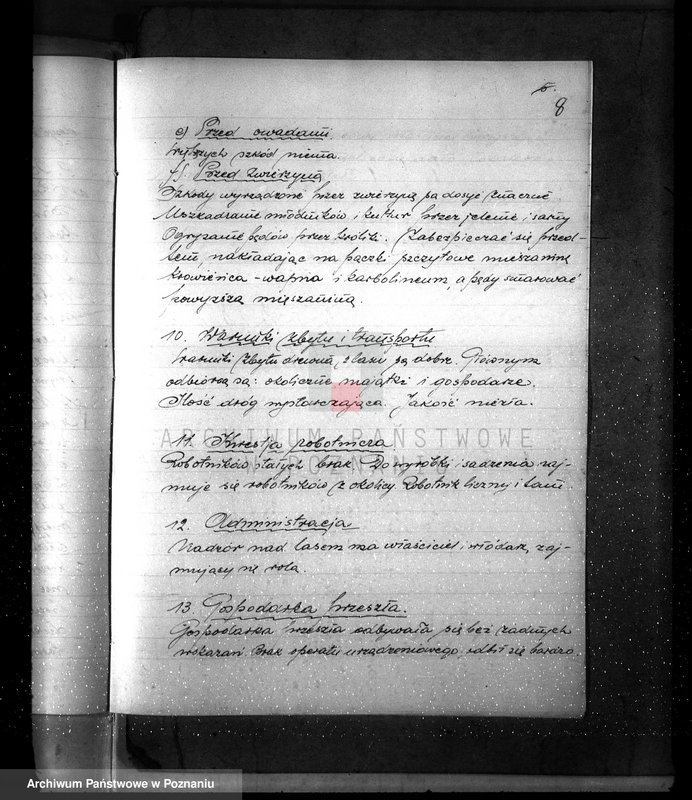 6.
8
e) Przed owadami.
Większych szkód niema.
f). Przed zwierzyną
Szkody wyrządzone przez zwierzynę są dosyć znaczne.
Uszkadzanie młodników i kultur przez jelenie i sarny
Ogryzanie pędów przez króliki. Zabezpieczać się przed-
tem, nakładając na pączki szczytowe mieszaninę
krowieńca - wapna i karbolineum, a pędy smarować
powyższą mieszaniną.
10. Warunki zbytu i transportu
Warunki zbytu drewna z lasu są dobr. Głównym
odbiorcą są: okoliczne majątki i gospodarze.
Ilość dróg wystarczająca. Jakość niezła.
11. Kwestja robotnicza
Robotników stałych brak. Do wyróbki i sadzenia zaj-
muje się robotników z okolicy. Robotnik liczny i tani
12. Administracja
Nadzór nad lasem ma właściciel i włódarz, zaj-
mujący się rolą.
13. Gospodarka przeszła.
Gospodarka przeszła odbywała się bez żadnych
wskazań. Brak operatu urządzeniowego odbił się bardzo
ARCHIWUM PAŃSTWOWE
W POZNANIU
Archiwum Państwowe w Poznaniu